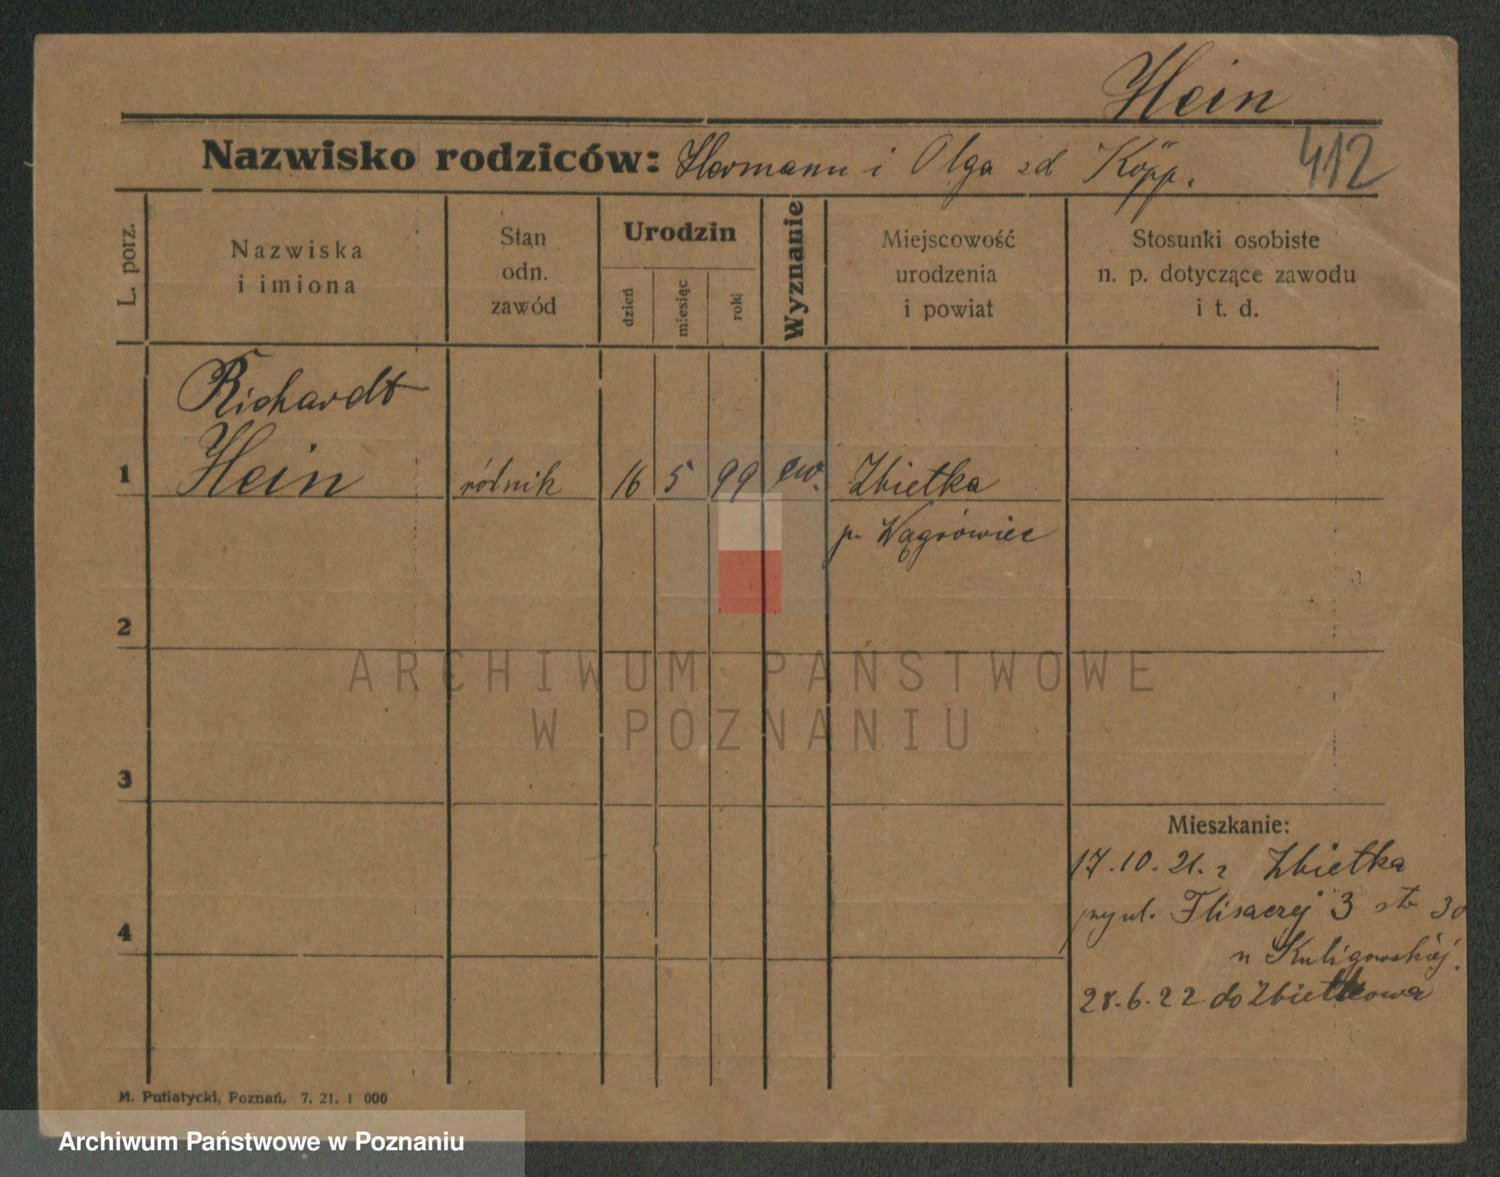 Hein
Nazwisko rodziców: Hermann i Olga zd Köpp.
412
L. porz.
Nazwiska
i imiona
Stan
odn.
zawód
Urodzin
dzień
miesiąc
rok
Wyznanie
Miejscowość
urodzenia
i powiat
Stosunki osobiste
n. p. dotyczące zawodu
i t. d.
Richardt
1 Hein rólnik 16 5 99 ew. Zbietka
p. Wągrówiec
2
ARCHIWUM PAŃSTWOWE
W POZNANIU
3
Mieszkanie:
17.10.21. z Zbietka
przy ul. Flisaczej 3 str
4
u Kuligowskiej.
28.6.22 do Zbietkowa
M. Putiatycki, Poznań. 7. 21. 1 000
Archiwum Państwowe w Poznaniu